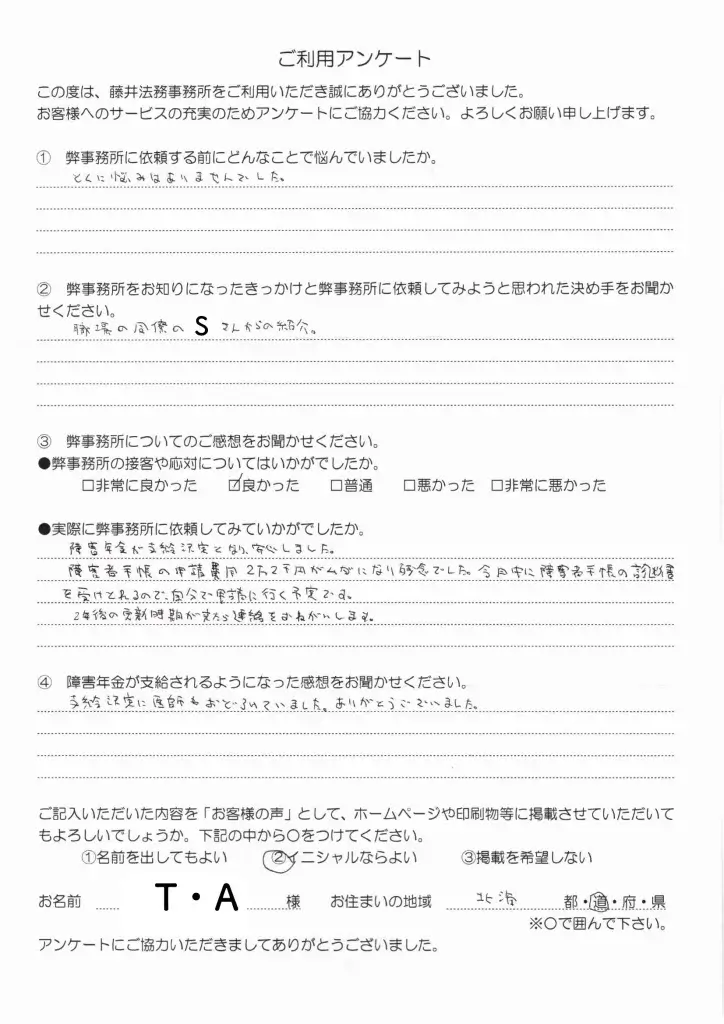 ご利用アンケート
この度は、藤井法務事務所をご利用いただき誠にありがとうございました。
お客様へのサービスの充実のためアンケートにご協力ください。よろしくお願い申し上げます。
① 弊事務所に依頼する前にどんなことで悩んでいましたか。
とくに悩みはありませんでした。
② 弊事務所をお知りになったきっかけと弊事務所に依頼してみようと思われた決め手をお聞か
せください。
職場の同僚の S さんからの紹介。
③ 弊事務所についてのご感想をお聞かせください。
●弊事務所の接客や応対についてはいかがでしたか。
□非常に良かった ☑良かった □普通 □悪かった □非常に悪かった
●実際に弊事務所に依頼してみていかがでしたか。
障害年金が支給決定となり、安心しました。
障害者手帳の申請費用2万2千円がムダになり残念でした。今月中に障害者手帳の診断書
を受けとれるので、自分で申請に行く予定です。
2年後の更新時期が来たら連絡をおねがいします。
④ 障害年金が支給されるようになった感想をお聞かせください。
支給決定に医師もおどろいていました。ありがとうございました。
ご記入いただいた内容を「お客様の声」として、ホームページや印刷物等に掲載させていただいて
もよろしいでしょうか。下記の中から○をつけてください。
①名前を出してもよい ②イニシャルならよい ③掲載を希望しない
お名前 T・A 様 お住まいの地域 北海 都・道・府・県
※○で囲んで下さい。
アンケートにご協力いただきましてありがとうございました。